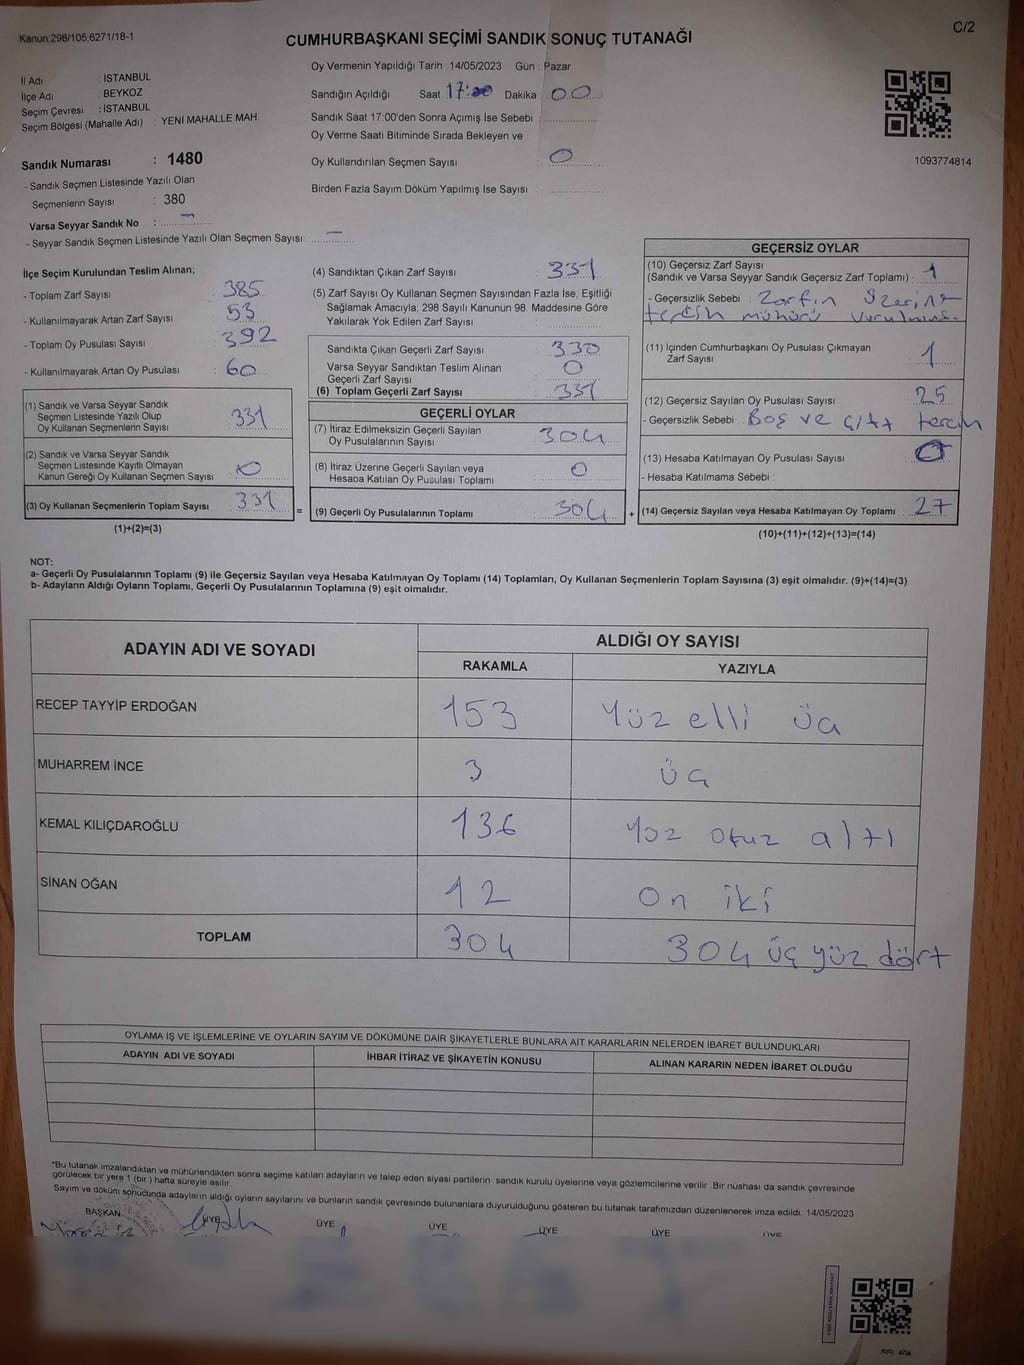 Kanun;298/105,6271/18-1
C/2
CUMHURBAŞKANI SEÇİMİ SANDIK SONUÇ TUTANAĞI
İl Adı : İSTANBUL
İlçe Adı : BEYKOZ
Seçim Çevresi : İSTANBUL
Seçim Bölgesi (Mahalle Adı) : YENİ MAHALLE MAH.
Sandık Numarası : 1480
- Sandık Seçmen Listesinde Yazılı Olan
Seçmenlerin Sayısı : 380
Varsa Seyyar Sandık No : -
- Seyyar Sandık Seçmen Listesinde Yazılı Olan Seçmen Sayısı: -
Oy Vermenin Yapıldığı Tarih : 14/05/2023 Gün : Pazar
Sandığın Açıldığı Saat 17:00 Dakika : 00
Sandık Saat 17:00'den Sonra Açımış İse Sebebi :
Oy Verme Saati Bitiminde Sırada Bekleyen ve
Oy Kullandırılan Seçmen Sayısı : 0
Birden Fazla Sayım Döküm Yapılmış İse Sayısı :
1093774814
İlçe Seçim Kurulundan Teslim Alınan;
- Toplam Zarf Sayısı : 385
- Kullanılmayarak Artan Zarf Sayısı : 53
- Toplam Oy Pusulası Sayısı : 392
- Kullanılmayarak Artan Oy Pusulası : 60
(1) Sandık ve Varsa Seyyar Sandık
Seçmen Listesinde Yazılı Olup
Oy Kullanan Seçmenlerin Sayısı : 331
(2) Sandık ve Varsa Seyyar Sandık
Seçmen Listesinde Kayıtlı Olmayan
Kanun Gereği Oy Kullanan Seçmen Sayısı : 0
(3) Oy Kullanan Seçmenlerin Toplam Sayısı : 331
(1)+(2)=(3)
(4) Sandıktan Çıkan Zarf Sayısı : 331
(5) Zarf Sayısı Oy Kullanan Seçmen Sayısından Fazla İse, Eşitliği
Sağlamak Amacıyla; 298 Sayılı Kanunun 98. Maddesine Göre
Yakılarak Yok Edilen Zarf Sayısı :
Sandıkta Çıkan Geçerli Zarf Sayısı : 330
Varsa Seyyar Sandıktan Teslim Alınan
Geçerli Zarf Sayısı : 0
(6) Toplam Geçerli Zarf Sayısı : 331
=
GEÇERLİ OYLAR
(7) İtiraz Edilmeksizin Geçerli Sayılan
Oy Pusulalarının Sayısı : 304
(8) İtiraz Üzerine Geçerli Sayılan veya
Hesaba Katılan Oy Pusulası Toplamı : 0
(9) Geçerli Oy Pusulalarının Toplamı : 304
+
GEÇERSİZ OYLAR
(10) Geçersiz Zarf Sayısı
(Sandık ve Varsa Seyyar Sandık Geçersiz Zarf Toplamı) : 1
- Geçersizlik Sebebi : Zarfın üzerine
tercih mühürü vurulmuş.
(11) İçinden Cumhurbaşkanı Oy Pusulası Çıkmayan
Zarf Sayısı : 1
(12) Geçersiz Sayılan Oy Pusulası Sayısı : 25
- Geçersizlik Sebebi : Boş ve çift tercih
(13) Hesaba Katılmayan Oy Pusulası Sayısı : 0
- Hesaba Katılmama Sebebi :
(14) Geçersiz Sayılan veya Hesaba Katılmayan Oy Toplamı : 27
(10)+(11)+(12)+(13)=(14)
NOT:
a- Geçerli Oy Pusulalarının Toplamı (9) ile Geçersiz Sayılan veya Hesaba Katılmayan Oy Toplamı (14) Toplamları, Oy Kullanan Seçmenlerin Toplam Sayısına (3) eşit olmalıdır. (9)+(14)=(3)
b- Adayların Aldığı Oyların Toplamı, Geçerli Oy Pusulalarının Toplamına (9) eşit olmalıdır.
ADAYIN ADI VE SOYADI
ALDIĞI OY SAYISI
RAKAMLA YAZIYLA
RECEP TAYYİP ERDOĞAN 153 Yüz elli üç
MUHARREM İNCE 3 üç
KEMAL KILIÇDAROĞLU 136 Yüz otuz altı
SİNAN OĞAN 12 On iki
TOPLAM 304 304 üç yüz dört
OYLAMA İŞ VE İŞLEMLERİNE VE OYLARIN SAYIM VE DÖKÜMÜNE DAİR ŞİKAYETLERLE BUNLARA AİT KARARLARIN NELERDEN İBARET BULUNDUKLARI
ADAYIN ADI VE SOYADI İHBAR İTİRAZ VE ŞİKAYETİN KONUSU ALINAN KARARIN NEDEN İBARET OLDUĞU
*Bu tutanak imzalandıktan ve mühürlendikten sonra seçime katılan adayların ve talep eden siyasi partilerin sandık kurulu üyelerine veya gözlemcilerine verilir. Bir nüshası da sandık çevresinde
görülecek bir yere 1 (bir ) hafta süreyle asılır.
Sayım ve döküm sonucunda adayların aldığı oyların sayılarını ve bunların sandık çevresinde bulunanlara duyurulduğunu gösteren bu tutanak tarafımızdan düzenlenerek imza edildi. 14/05/2023
BAŞKAN ÜYE ÜYE ÜYE ÜYE ÜYE ÜYE